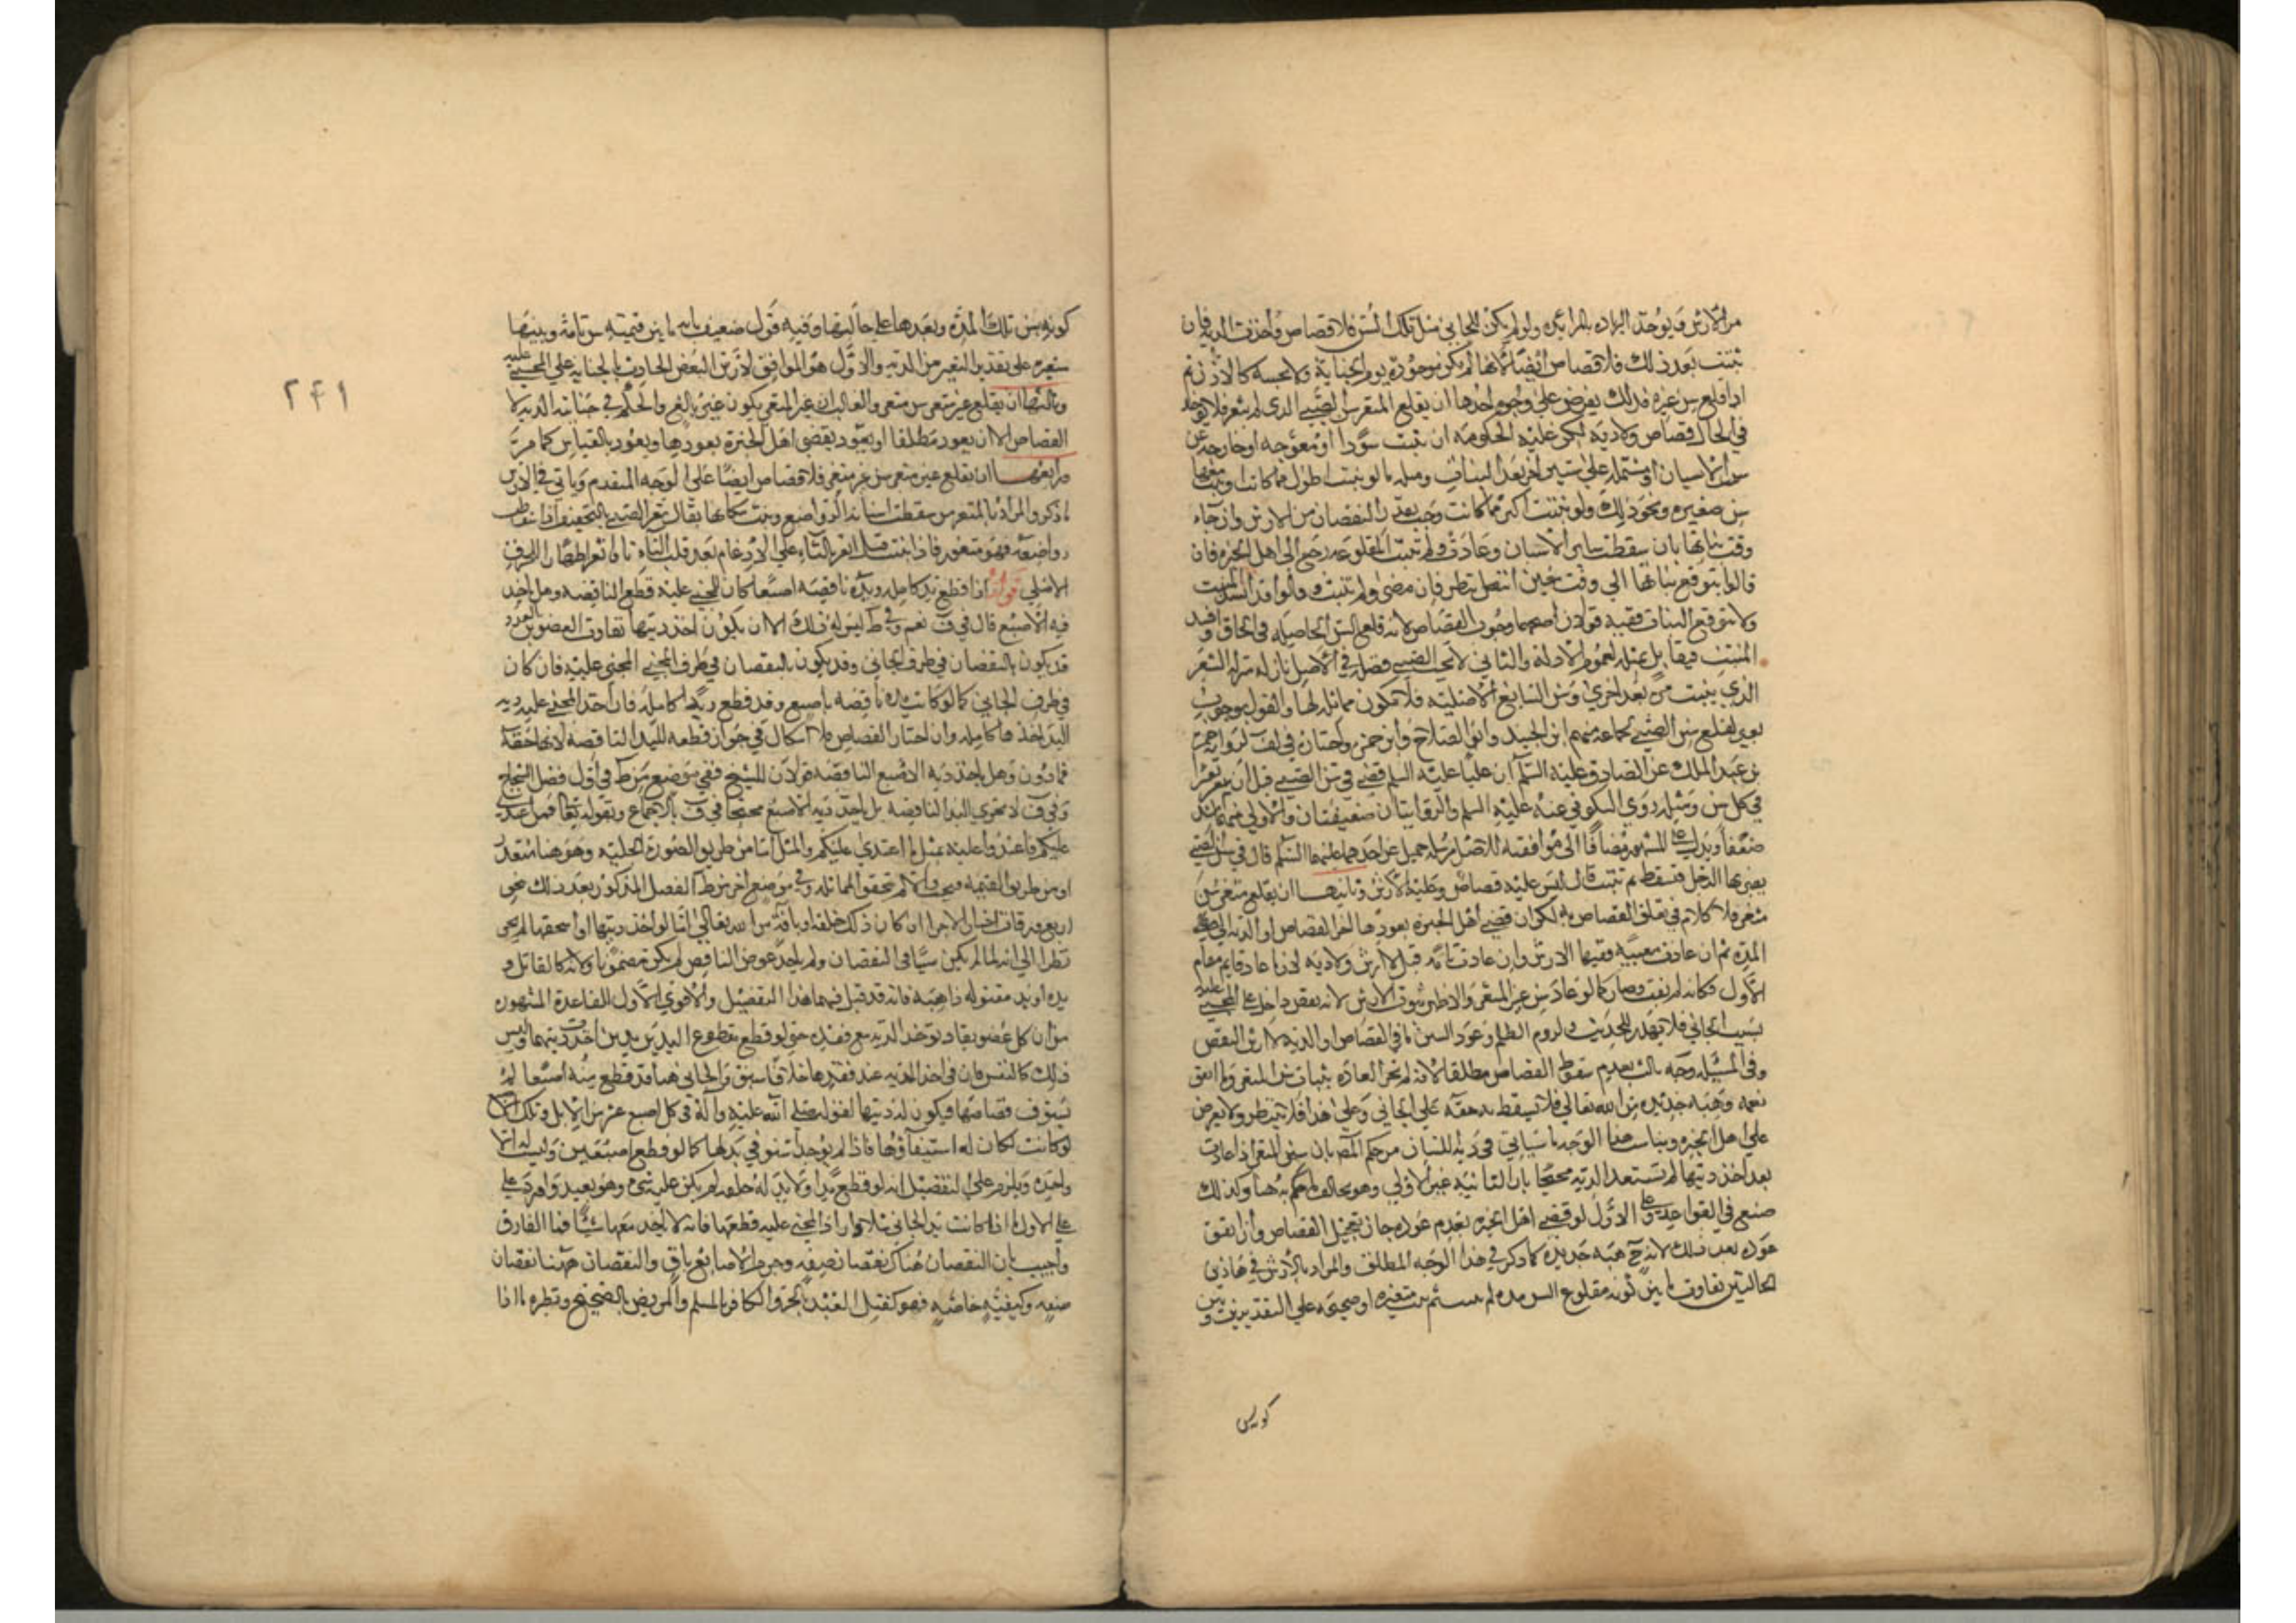 من الارش ويوخذ الزياده بالزائده ولو لم يكن للجاني مثل تلك السن فلا قصاص واخذت الديه فان
نبتت بعد ذلك فلا قصاص ايضا لانها لم تكن موجوده يوم الجناية
اذا قلع سن غيره فذلك يفرض على وجوه احدها ان يقلع المثغر سن الصبي الذي لم يثغر فلا
في الحال قصاص ولا ديه لكن عليه الحكومه ان نبتت سودا او معوجه او خارجه عن
سمت الاسنان او نبتت اطول مما كانت او نبت معها
سن صغيره ونحو ذلك ولو نبتت اكبر مما كانت وجب بقدر النقصان من الارش وان جاء
وقت نباتها بان سقطت ساير الاسنان وعادت ولم تنبت المقلوعه رجع الى اهل الخبره فان
قالوا يتوقع نباتها الى وقت معين انتظر فان مضى ولم تنبت وقالوا قد فسد المنبت
ولا يتوقع النبات ففيه قولان اصحهما وجوب القصاص لانه قلع السن الحاصله في الحال وافسد
المنبت فيقابل بمثله لعموم الادلة والثاني لا سن الصبي فضله في الاصل نازله منزله الشعر
الذي ينبت مره بعد اخرى وسن البالغ اصليه فلا تكون مماثله لها والقول بوجوب
بعير لقلع سن الصبي لجماعه منهم ابن الجنيد وابو الصلاح وابن حمزه واختاره في لف لروايه
بن عبد الملك عن الصادق عليه السلم ان عليا عليه السلم قضى في سن الصبي قبل ان يثغر بعيرا
في كل سن ومثله روى السكوني عنه عليه السلم والروايتان ضعيفتان والاولى منهما اشد
ضعفا ويدل على المشهور مضافا الى موافقته للاصل مرسله جميل عن احدهما عليهما السلم قال في سن الصبي
يضربها الرجل فتسقط ثم تنبت قال ليس عليه قصاص وعليه الارش وثانيها ان يقلع مثغر سن
مثغر فلا كلام في تعلق القصاص به لكن ان قضى اهل الخبره بعودها اخر القصاص او الديه الى مضي
المده ثم ان عادت معيبه ففيها الارش وان عادت تامه قيل لا ارش ولا ديه لان ما عاد قايم مقام
الاول فكانه لم يفت وصار كما لو عاد سن غير المثغر والاظهر ثبوت الارش لانه نقص داخل على المجني عليه
بسبب الجاني فلا يهدر للحديث ولزوم الظلم وعود السن ينافي القصاص او الديه لا ارش النقص
وفي المسئله وجه ثالث بعدم سقوط القصاص مطلقا لانه لم تجر العاده بنبات سن المثغر وما اتفق
نعمه وهبه جديده من الله تعالى فلا يسقط به حقه على الجاني وعلى هذا فلا ينتظر ولا يعرض
على اهل الخبره ويناسب هذا الوجه ما سيأتي في دية اللسان من حكم المصـ بان سن المثغر اذا عادت
بعد اخذ ديتها لم تستعد الديه محتجا بان الثانيه غير الاولى وهو يخالف ما حكم به هنا وكذلك
صنع في القواعد وعلى الاول لو قضى اهل الخبره بعدم عوده جاز تعجيل القصاص وان اتفق
عوده بعد ذلك لانه ح هبه جديده كما ذكر في هذا الوجه المطلق والمراد بالارش في هاتين
الحالتين تفاوت ما بين كونه مقلوع السن مده ثم نبتت متغيره او صحيحه على التقديرين وبين
كونه بسن
كونه بسن تلك المده وبعدها على حالتها وفيه قول ضعيف بانه ما بين قيمته بسن تامة وبينها
متغيره على تقدير التغير من الديه والاول هو الموافق لارش النقص الحادث بالجنايه على المجني عليه
وثالثها ان يقلع غير مثغر سن مثغر والغالب ان غير المثغر يكون غير بالغ والحكم في جنايته الديه لا
القصاص الا ان يعود مطلقا او يعود بقضى اهل الخبرة بعودها ويعود بالقياس كما مر
ورابعها ان يقلع غير مثغر سن غير مثغر فلا قصاص ايضا على الوجه المتقدم وياتي في الارش
ما ذكر والمراد بالمثغر من سقطت اسنانه الرواضع ونبت مكانها يقال ثغر الصبي بالتخفيف اذا سقطت
رواضعه فهو مثغور فاذا نبتت قيل اتغر بالتاء على الادغام بعد قلب الثاء تاء واثغر اظهارا للحرف
الاصلي قوله اذا قطع يدا كامله ويده ناقصه اصبعا كان للمجني عليه قطع الناقصه وهل ياخذ
ديه الاصبع قال في ف نعم وفي ط ليس له ذلك الا ان يكون اخذ ديتها تفاوت العضوين بالعدد
قد يكون بالنقصان في طرف الجاني وقد يكون بالنقصان في طرف المجني عليه فان كان
في طرف الجاني كما لو كانت يده ناقصه باصبع وقد قطع يدا كامله فان اخذ المجني عليه ديه
اليد اخذها كامله وان اختار القصاص فلا اشكال في جواز قطعه لليد الناقصه لانها حقه
فما دون وهل ياخذ ديه الاصبع الناقصه قولان للشيخ ففي موضع من ط في اول فصل الشجاج
وفي ف لا تجزي اليد الناقصه بل ياخذ ديه الاصبع محتجا في ف بالاجماع وبقوله تعا فمن اعتدى
عليكم فاعتدوا عليه بمثل ما اعتدى عليكم والمثل اما من طريق الصورة الخلقيه وهو هنا متعذر
او من طريق القيمه فيجب والا لم تحقق المماثله وفي موضع اخر من ط الفصل المذكور بعد ذلك بنحو
اربع ورقات اختار الاجزا ان كان ذلك خلقه او بافة من الله تعالى اما لو اخذ ديتها او استحقها لم يجز
نظرا الى انه لما لم يكن سببا في النقصان ولم ياخذ عوض الناقص لم يكن مضمونا ولانه كالقاتل و
يده او يد مقتوله ذاهبه فانه قد قيل فيهما هذا التفصيل والاقوى الاول للقاعدة المشهوره
من ان كل عضو يقاد توخذ الديه مع فقده حتى لو قطع مقطوع اليدين يدين اخذت ديتهما وليس
ذلك كالنفس فان في اخذ الديه عند فقدها خلافا سبق والجاني هنا قد قطع منه اصبعا لم
يستوف قصاصها فيكون له ديتها لقوله صلى الله عليه وآله في كل اصبع عشر من الابل وتلك
لو كانت لكان له استيفاؤها فاذا لم يوجد استوفي بدلها كما لو قطع اصبعين وليس له الا
واحده ويلزم على التفصيل انه لو قطع يدا ولا يد له خلقه لم يكن عليه شيء وهو بعيد واورد على
الاول ما اذا كانت يد الجاني شلاء واراد المجني عليه قطعها فانه لا ياخذ معها شيئا فما الفارق
واجيب بان النقصان هناك نقصان صفه وجرم الاصابع باق والنقصان هنا نقصان
صفه وكيفيه خاصه فهو كقتل العبد بالحر والكافر بالمسلم والمريض بالصحيح ونظيره ما اذا
٢٤١